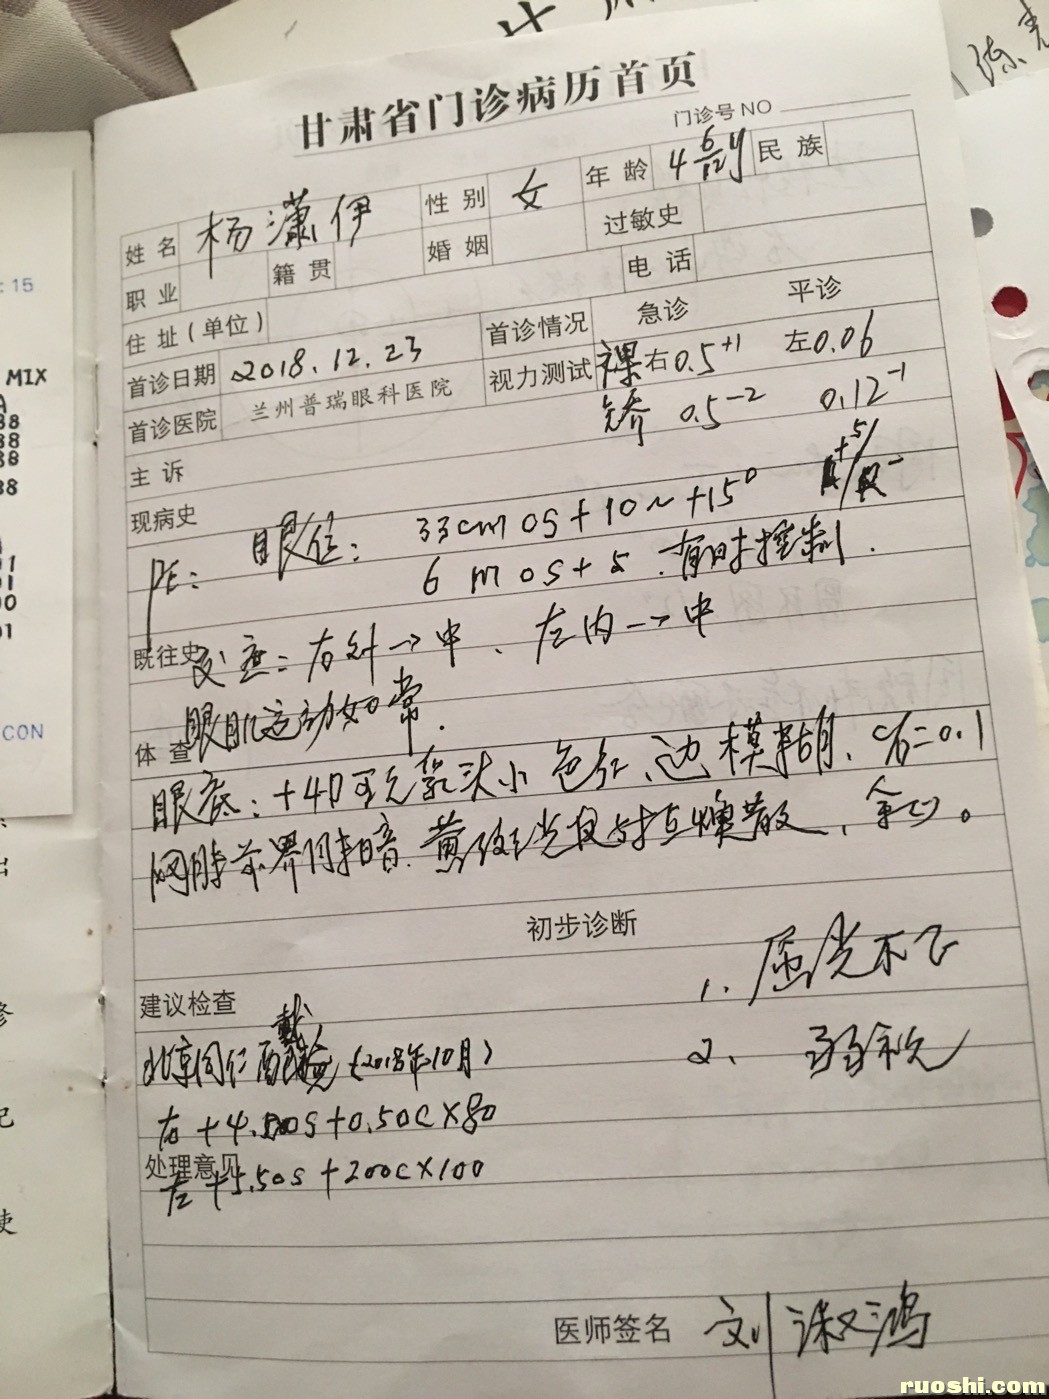 甘肃省门诊病历首页
门诊号 NO
姓名 杨潇伊 性别 女 年龄 4 6/12 岁 民族
职业 籍贯 婚姻 过敏史
住址(单位) 电话
首诊日期 2018.12.23 首诊情况 急诊 平诊
首诊医院 兰州普瑞眼科医院 视力测试 裸 右0.5+1 左0.06
矫 0.5-2 0.12-1
主诉
现病史
PE: 眼位: 33cm OS+10~+15°
6m OS+5 . 有时控制.
既往史 左内→中
眼肌运动如常.
体查
眼底: +4D 乳头小 色红、边模糊、C/D=0.1
黄斑 余(-)。
初步诊断
1. 屈光不正
建议检查
2. 弱视
北京同仁 戴镜(2018年10月)
右 +0.50C×80
处理意见
左 +5.50S +2.00C×100
医师签名 刘淑鸿
: 15
MIX
CON
ruoshi.com